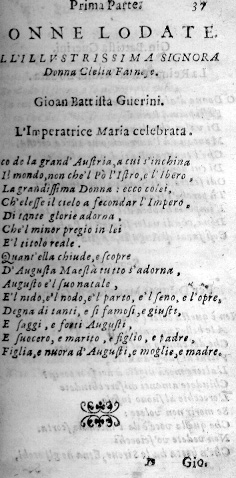 Prima Parte. 37
ONNE LODATE.
LL'ILLVSTRISSIMA SIGNORA
Donna Clelia Farnese.
Gioan Battista Guerini.
L'Imperatrice Maria celebrata.
co de la grand' Austria, a cui s'inchina
Il mondo, non che'l Pò l'Istro, e l'Ibero,
La grandissima Donna: ecco colei,
Ch'elesse il cielo a fecondar l'Impero.
Di tante glorie adorna,
Che'l minor pregio in lei
E'l titolo reale.
Quant'ella chiude, e scopre
D'Augusta Maestà tutto s'adorna,
Augusto e'l suo natale,
E'l nido, e'l nodo, e'l parto, e'l seno, e l'opre,
Degna di tanti, e sì famosi, e giusti,
E saggi, e forti Augusti,
E suocero, e marito, e figlio, e padre,
Figlia, e nuora d'Augusti, e moglie, e madre.
Gio.